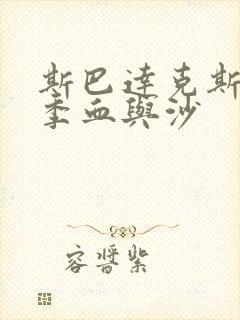 斯巴達克斯
季血與沙
容晉紫